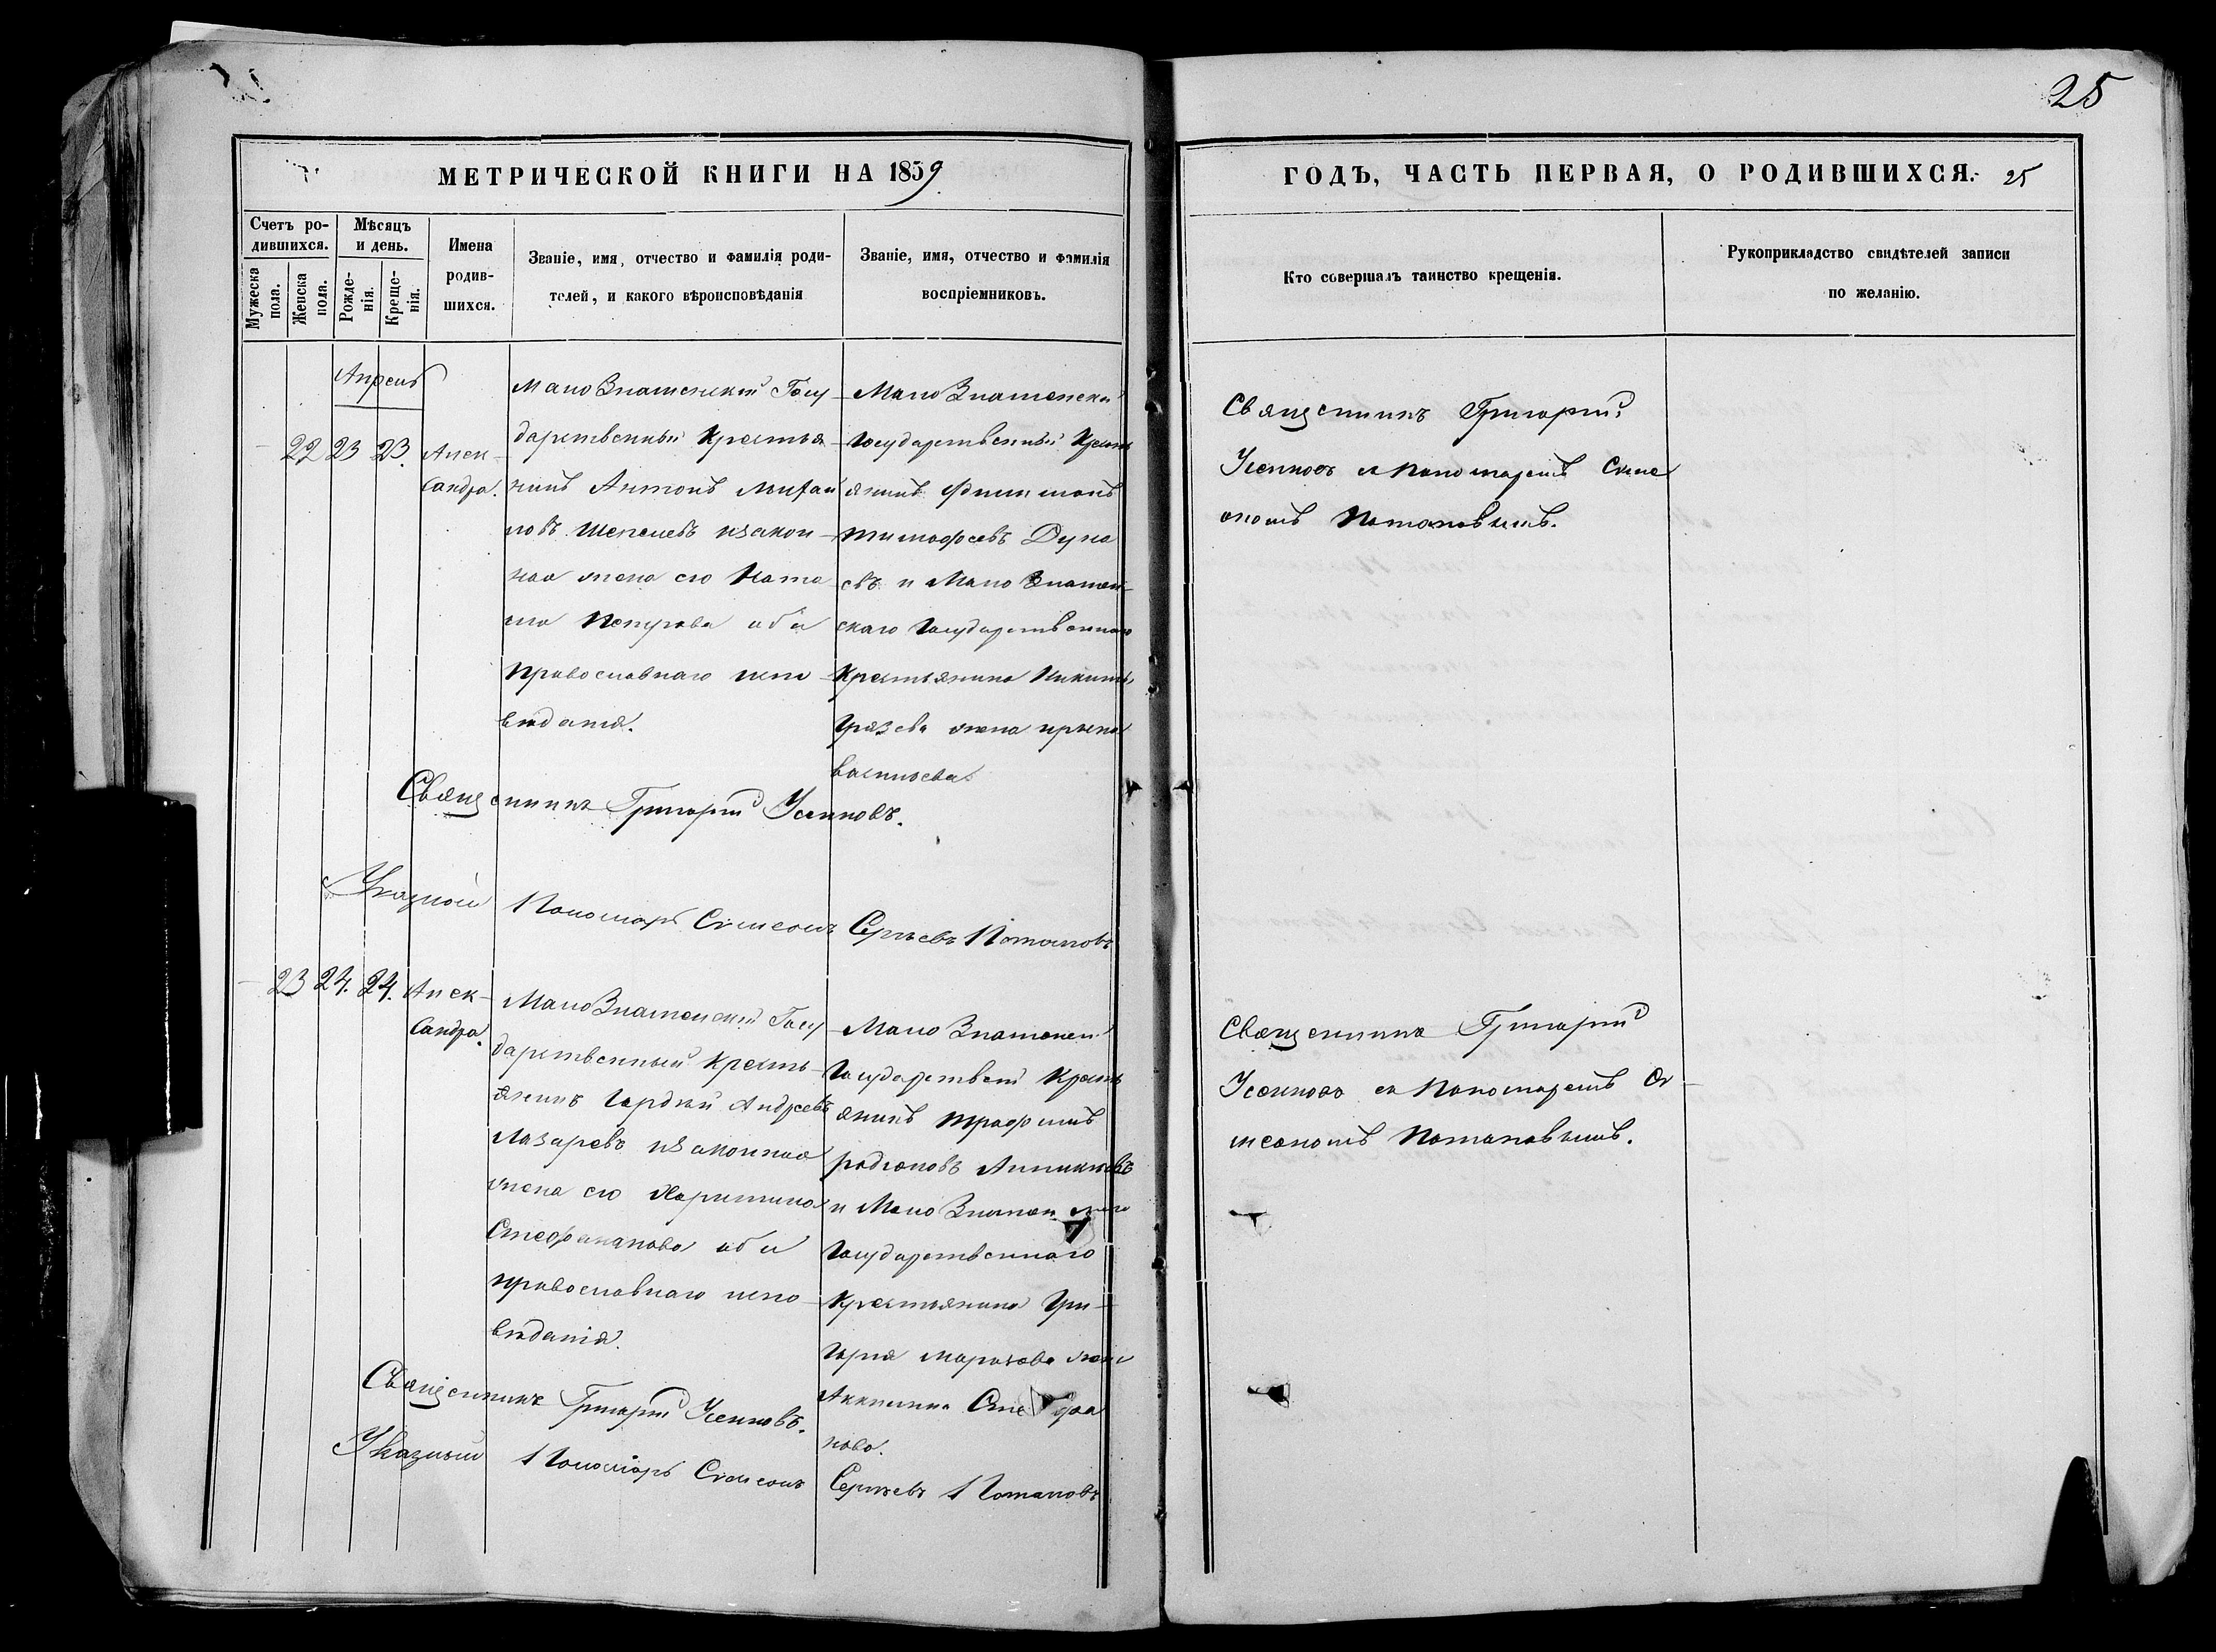 25
МЕТРИЧЕСКОЙ КНИГИ НА 1859
ГОДЪ, ЧАСТЬ ПЕРВАЯ, О РОДИВШИХСЯ. 25
Счетъ ро-
дившихся.
Мужеска
пола.
Женска
пола.
Мѣсяцъ
и день.
Рожде-
нія.
Креще-
нія.
Имена
родив-
шихся.
Званіе, имя, отчество и фамилія роди-
телей, и какого вѣроисповѣданія
Званіе, имя, отчество и фамилія
воспріемниковъ.
Кто совершалъ таинство крещенія.
Рукоприкладство свидѣтелей записи
по желанію.
Апрель
22 23 23.
Алек-
сандра.
МалоЗнаменский Госу-
дарственный Крестья-
нинъ Антонъ Михай
ловъ Шепелевъ изакон-
ная жена его Ната
лiа Петрова оба
православнаго испо-
вѣданiя.
Мало Знаменский
Государственный Кресть
янинъ Филимонъ
Тимофеевъ Дуна
евъ и Мало Знамен-
скаго Государственнаго
Крестьянина Никиты
Грязева жена Ирина
Васильева.
Священникъ Григорий
Усенковъ спономаремъ Симе
ономъ Потаповымъ.
Священникъ Григорий Усенковъ.
Указной Пономарь Симеонъ Сергѣевъ Потаповъ
23 24. 24.
Алек-
сандра.
МалоЗнаменский Госу-
дарственный Кресть-
янинъ Гордѣй Андреевъ
Лазаревъ изаконная
жена его Харитина
Стефананова оба
православнаго испо-
вѣданiя.
Мало Знаменский
Государствен Кресть
янинъ Трофимъ
Родионовъ Анникѣевъ
и Мало Знаменскаго
Государственнаго
Крестьянина Гри-
горiя Марозова жена
Аккилина Стефа
нова.
Священникъ Григорий
Усенковъ спономаремъ Си-
меономъ Потаповымъ.
Священникъ Григорий Усенковъ.
Указный Пономарь Симеонъ Сергѣевъ Потаповъ